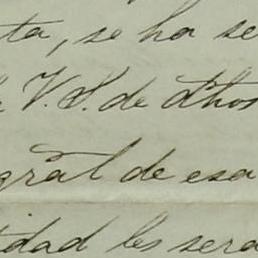 ta, se ha se
V. S. de Lhos
gral de esa
tidad les sera